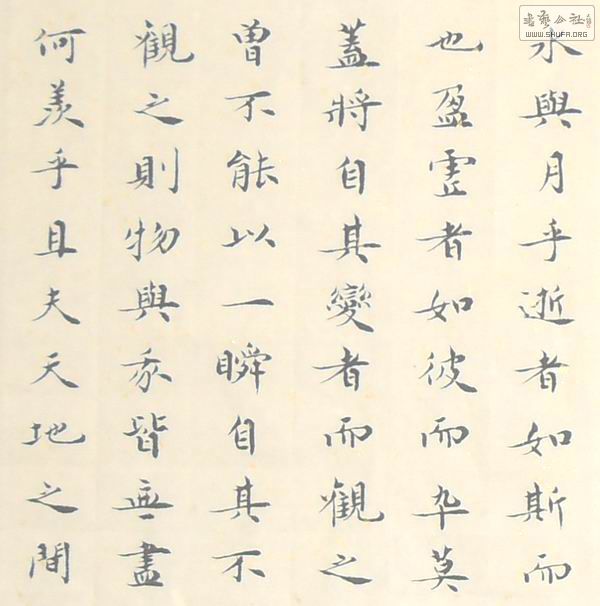 書藝公社
WWW.SHUFA.ORG
水與月乎逝者如斯而
也盈虛者如彼而卒莫
蓋將自其變者而觀之
曾不能以一瞬自其不
觀之則物與我皆無盡
何羨乎且夫天地之間